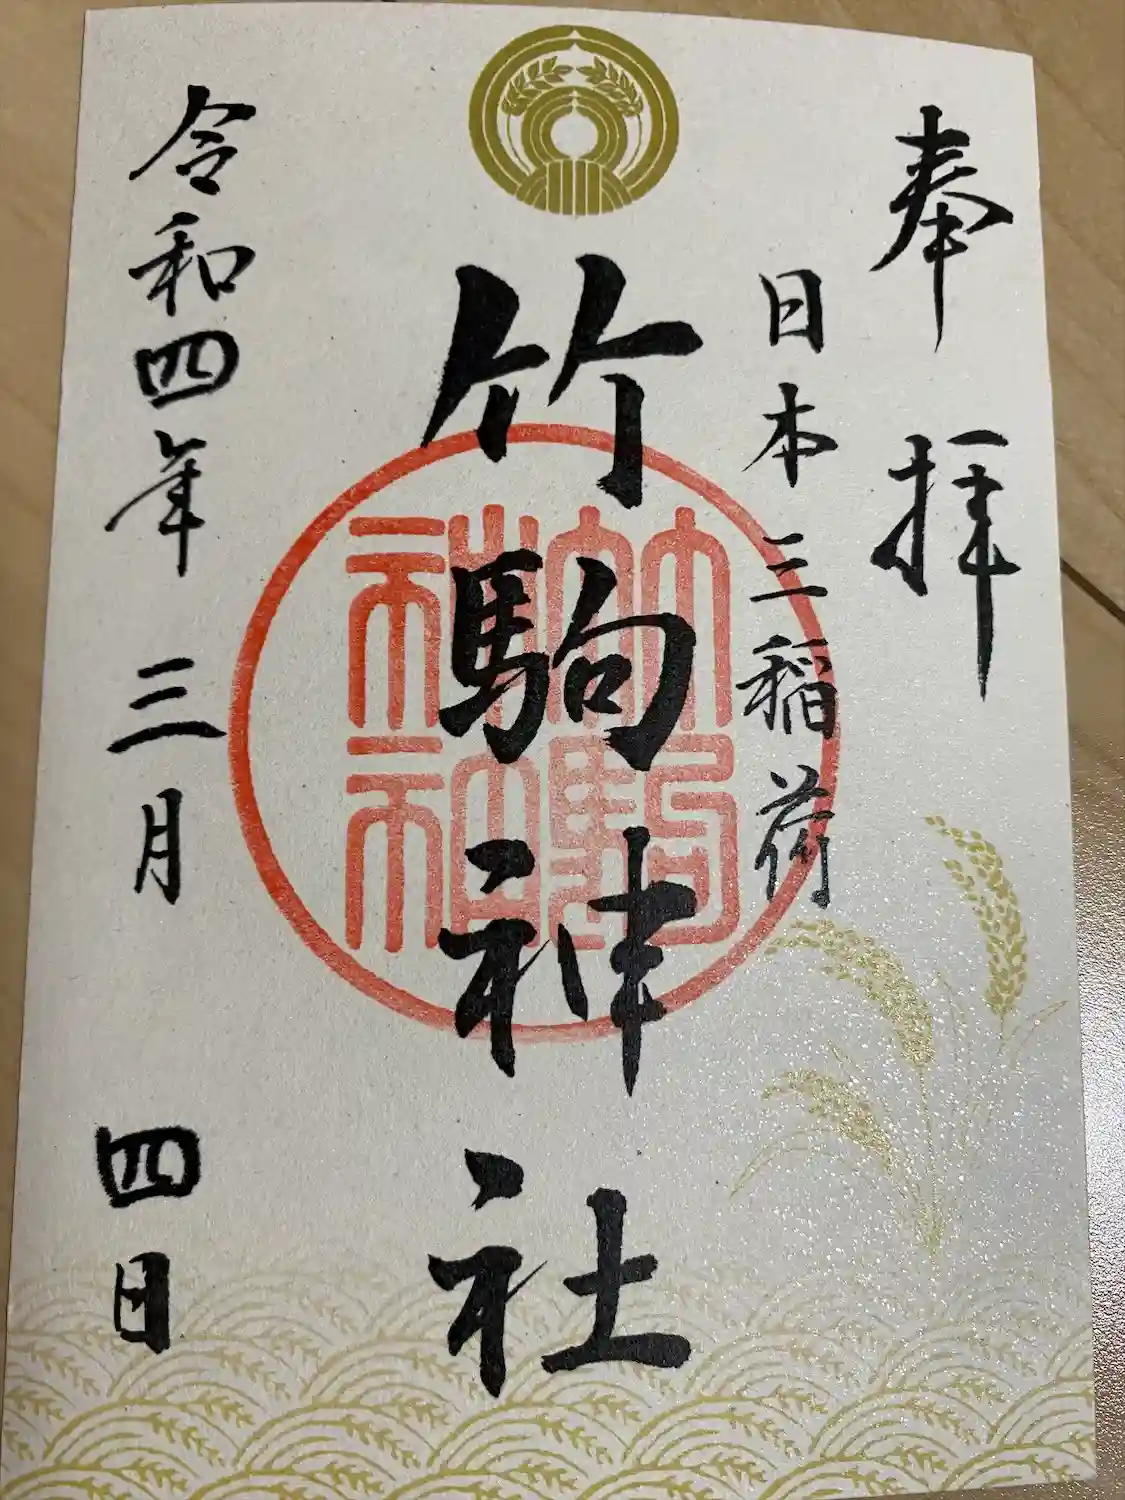 奉拝
日本三稲荷
竹駒神社
竹駒
神社
令和四年三月四日